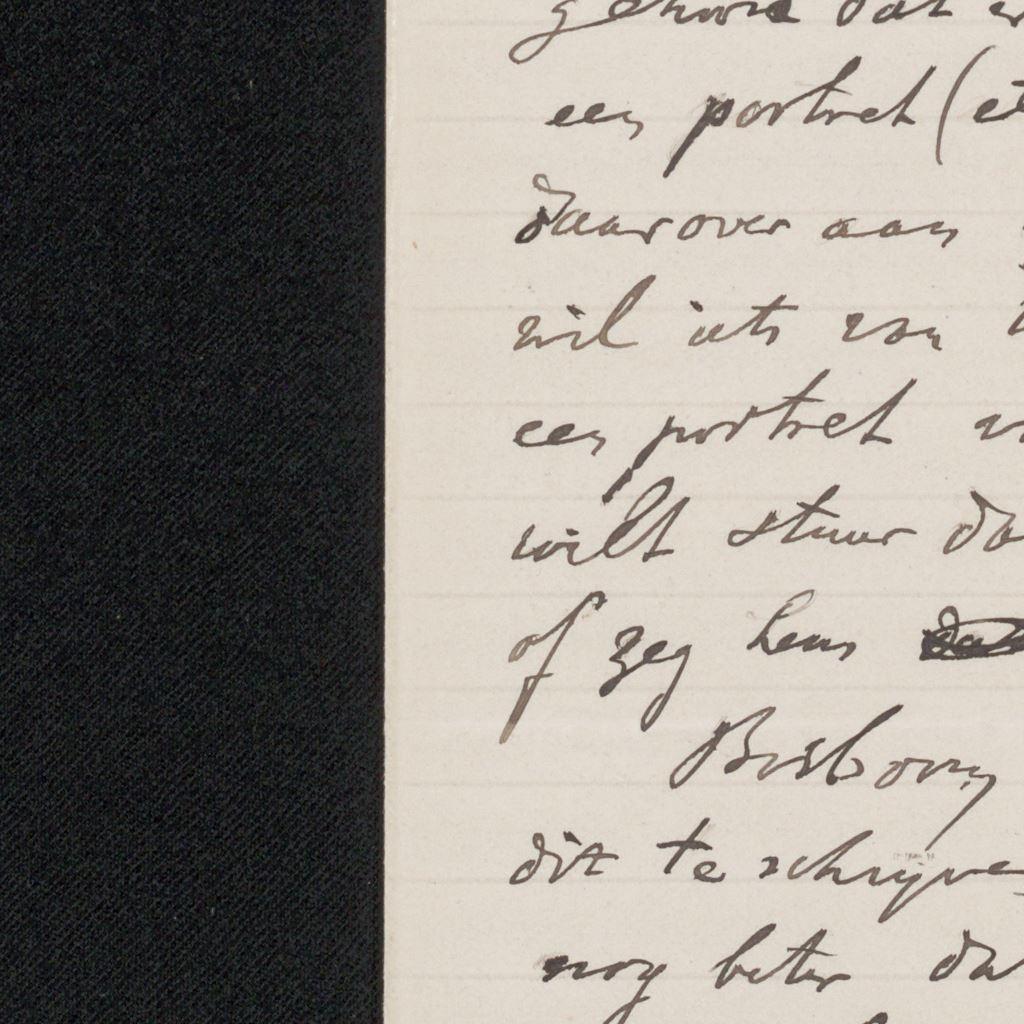 gehoord dat
een portret (
daarover aan
wil iets van
een portret
wilt stuur
of zeg hem
Bosboom
dit te schrijve
nog beter dat